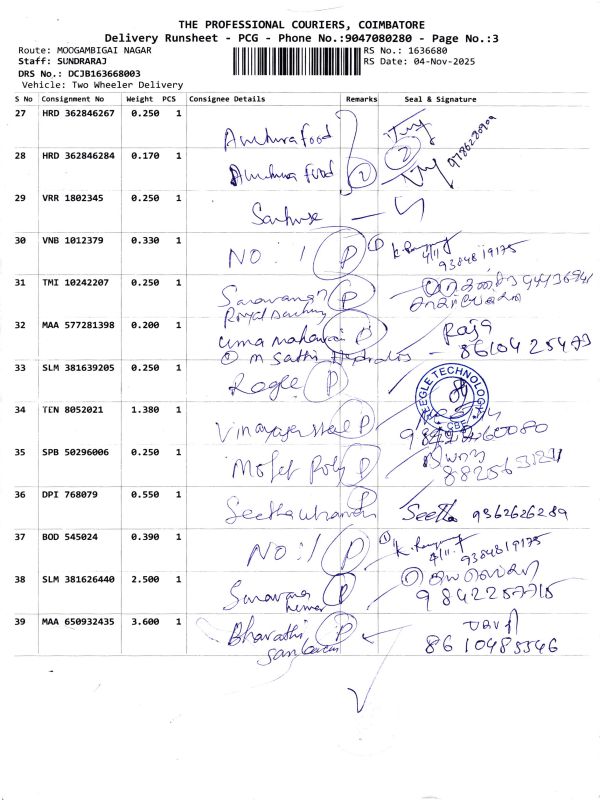 THE PROFESSIONAL COURIERS, COIMBATORE
Delivery Runsheet - PCG - Phone No.:9047080280 - Page No.:3
Route: MOOGAMBIGAI NAGAR RS No.: 1636680
Staff: SUNDRARAJ RS Date: 04-Nov-2025
DRS No.: DCJB163668003
Vehicle: Two Wheeler Delivery
S No Consignment No Weight PCS Consignee Details Remarks Seal & Signature
27 HRD 362846267 0.250 1
Food
28 HRD 362846284 0.170 1
Food 2 2 9786220909
29 VRR 1802345 0.250 1
30 VNB 1012379 0.330 1
NO: 1 P 1 4/11 9384819175
31 TMI 10242207 0.250 1
Saravanan P
Royal
32 MAA 577281398 0.200 1
uma maheswari P Raja
m Sathi 8610425479
33 SLM 381639205 0.250 1
Reegle P REEGLE TECHNOLOGY CBE
34 TEN 8052021 1.380 1
Vinayager steel P
35 SPB 50296006 0.250 1
Poly P
36 DPI 768079 0.550 1
P Seetha 9362626289
37 BOD 545024 0.390 1
NO: 1 P 1 4/11 9384819175
38 SLM 381626440 2.500 1
Saravana P 1
kumar 9842257715
39 MAA 650932435 3.600 1
Bharathi P
8610485546